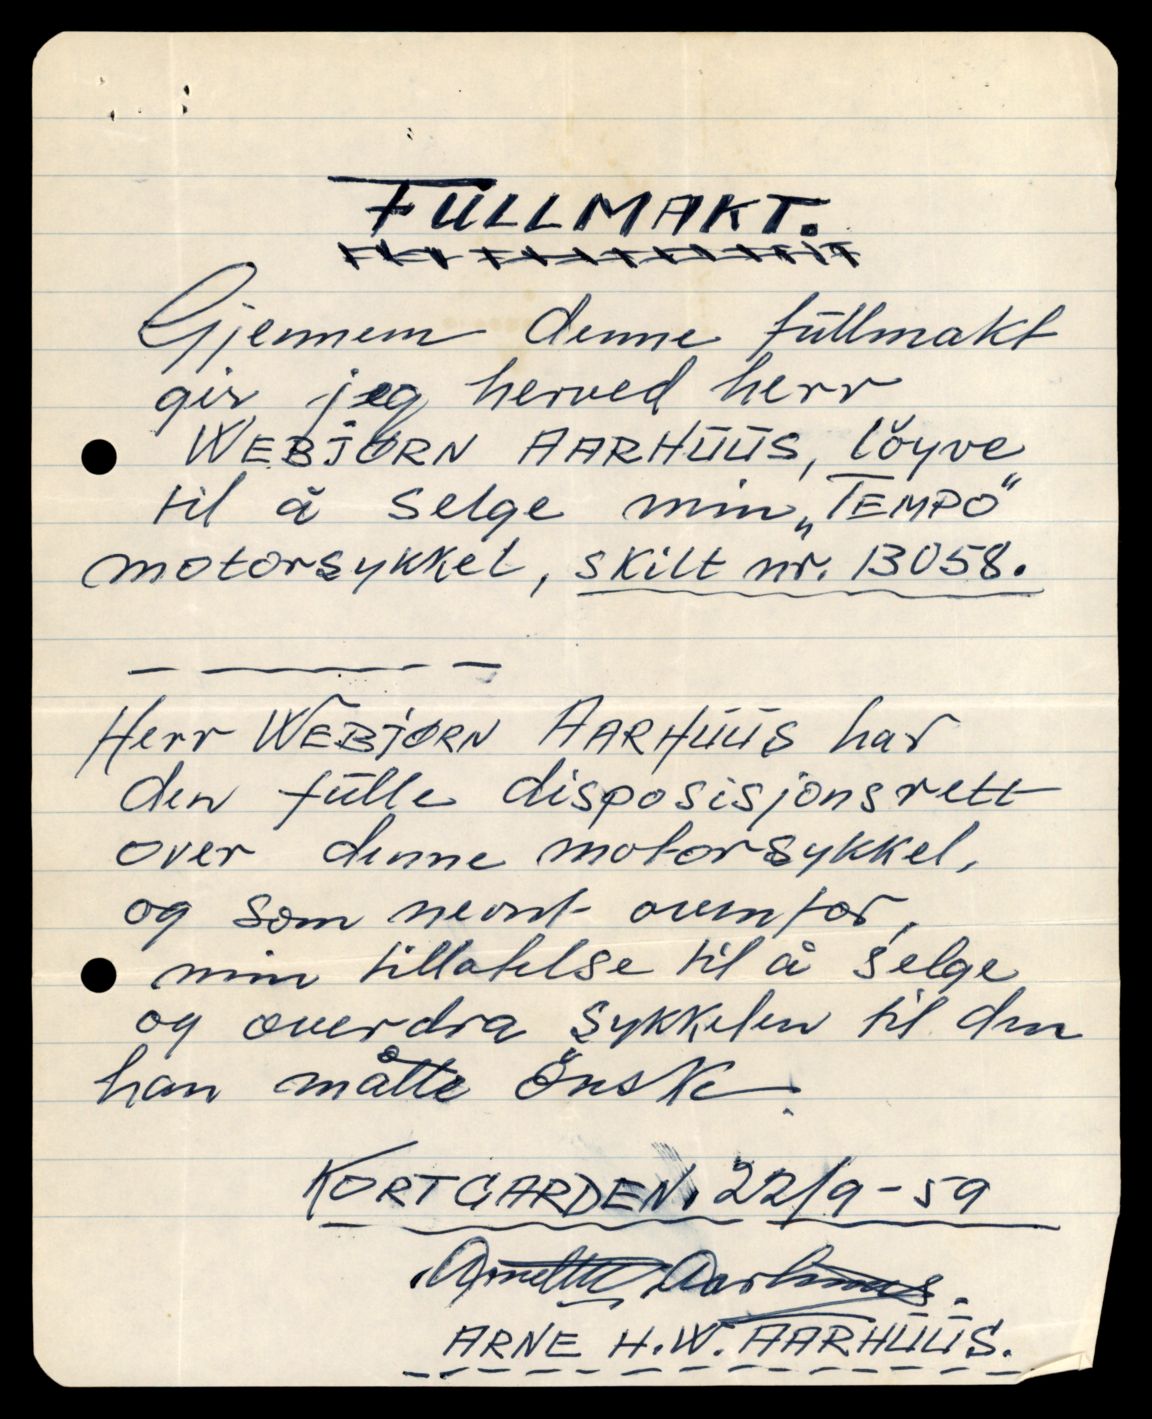 FULLMAKT.
Gjennem denne fullmakt
gir jeg herved herr
WEBJØRN AARHUUS, löyve
til å selge min „TEMPO"
motorsykkel, skilt nr. 13058.
Herr WEBJØRN AARHUUS har
den fulle disposisjonsrett
over denne motorsykkel,
og som nevnt ovenfor,
min tillatelse til å selge
og overdra sykkelen til den
han måtte önske.
KORTGARDEN, 22/9-59
Aarhuus.
ARNE H.W. AARHUUS.